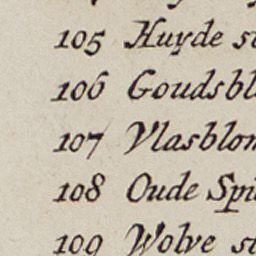 105 Huyde st
106 Goudsbl
107 Vlasblom
108 Oude Spi
109 Wolve st